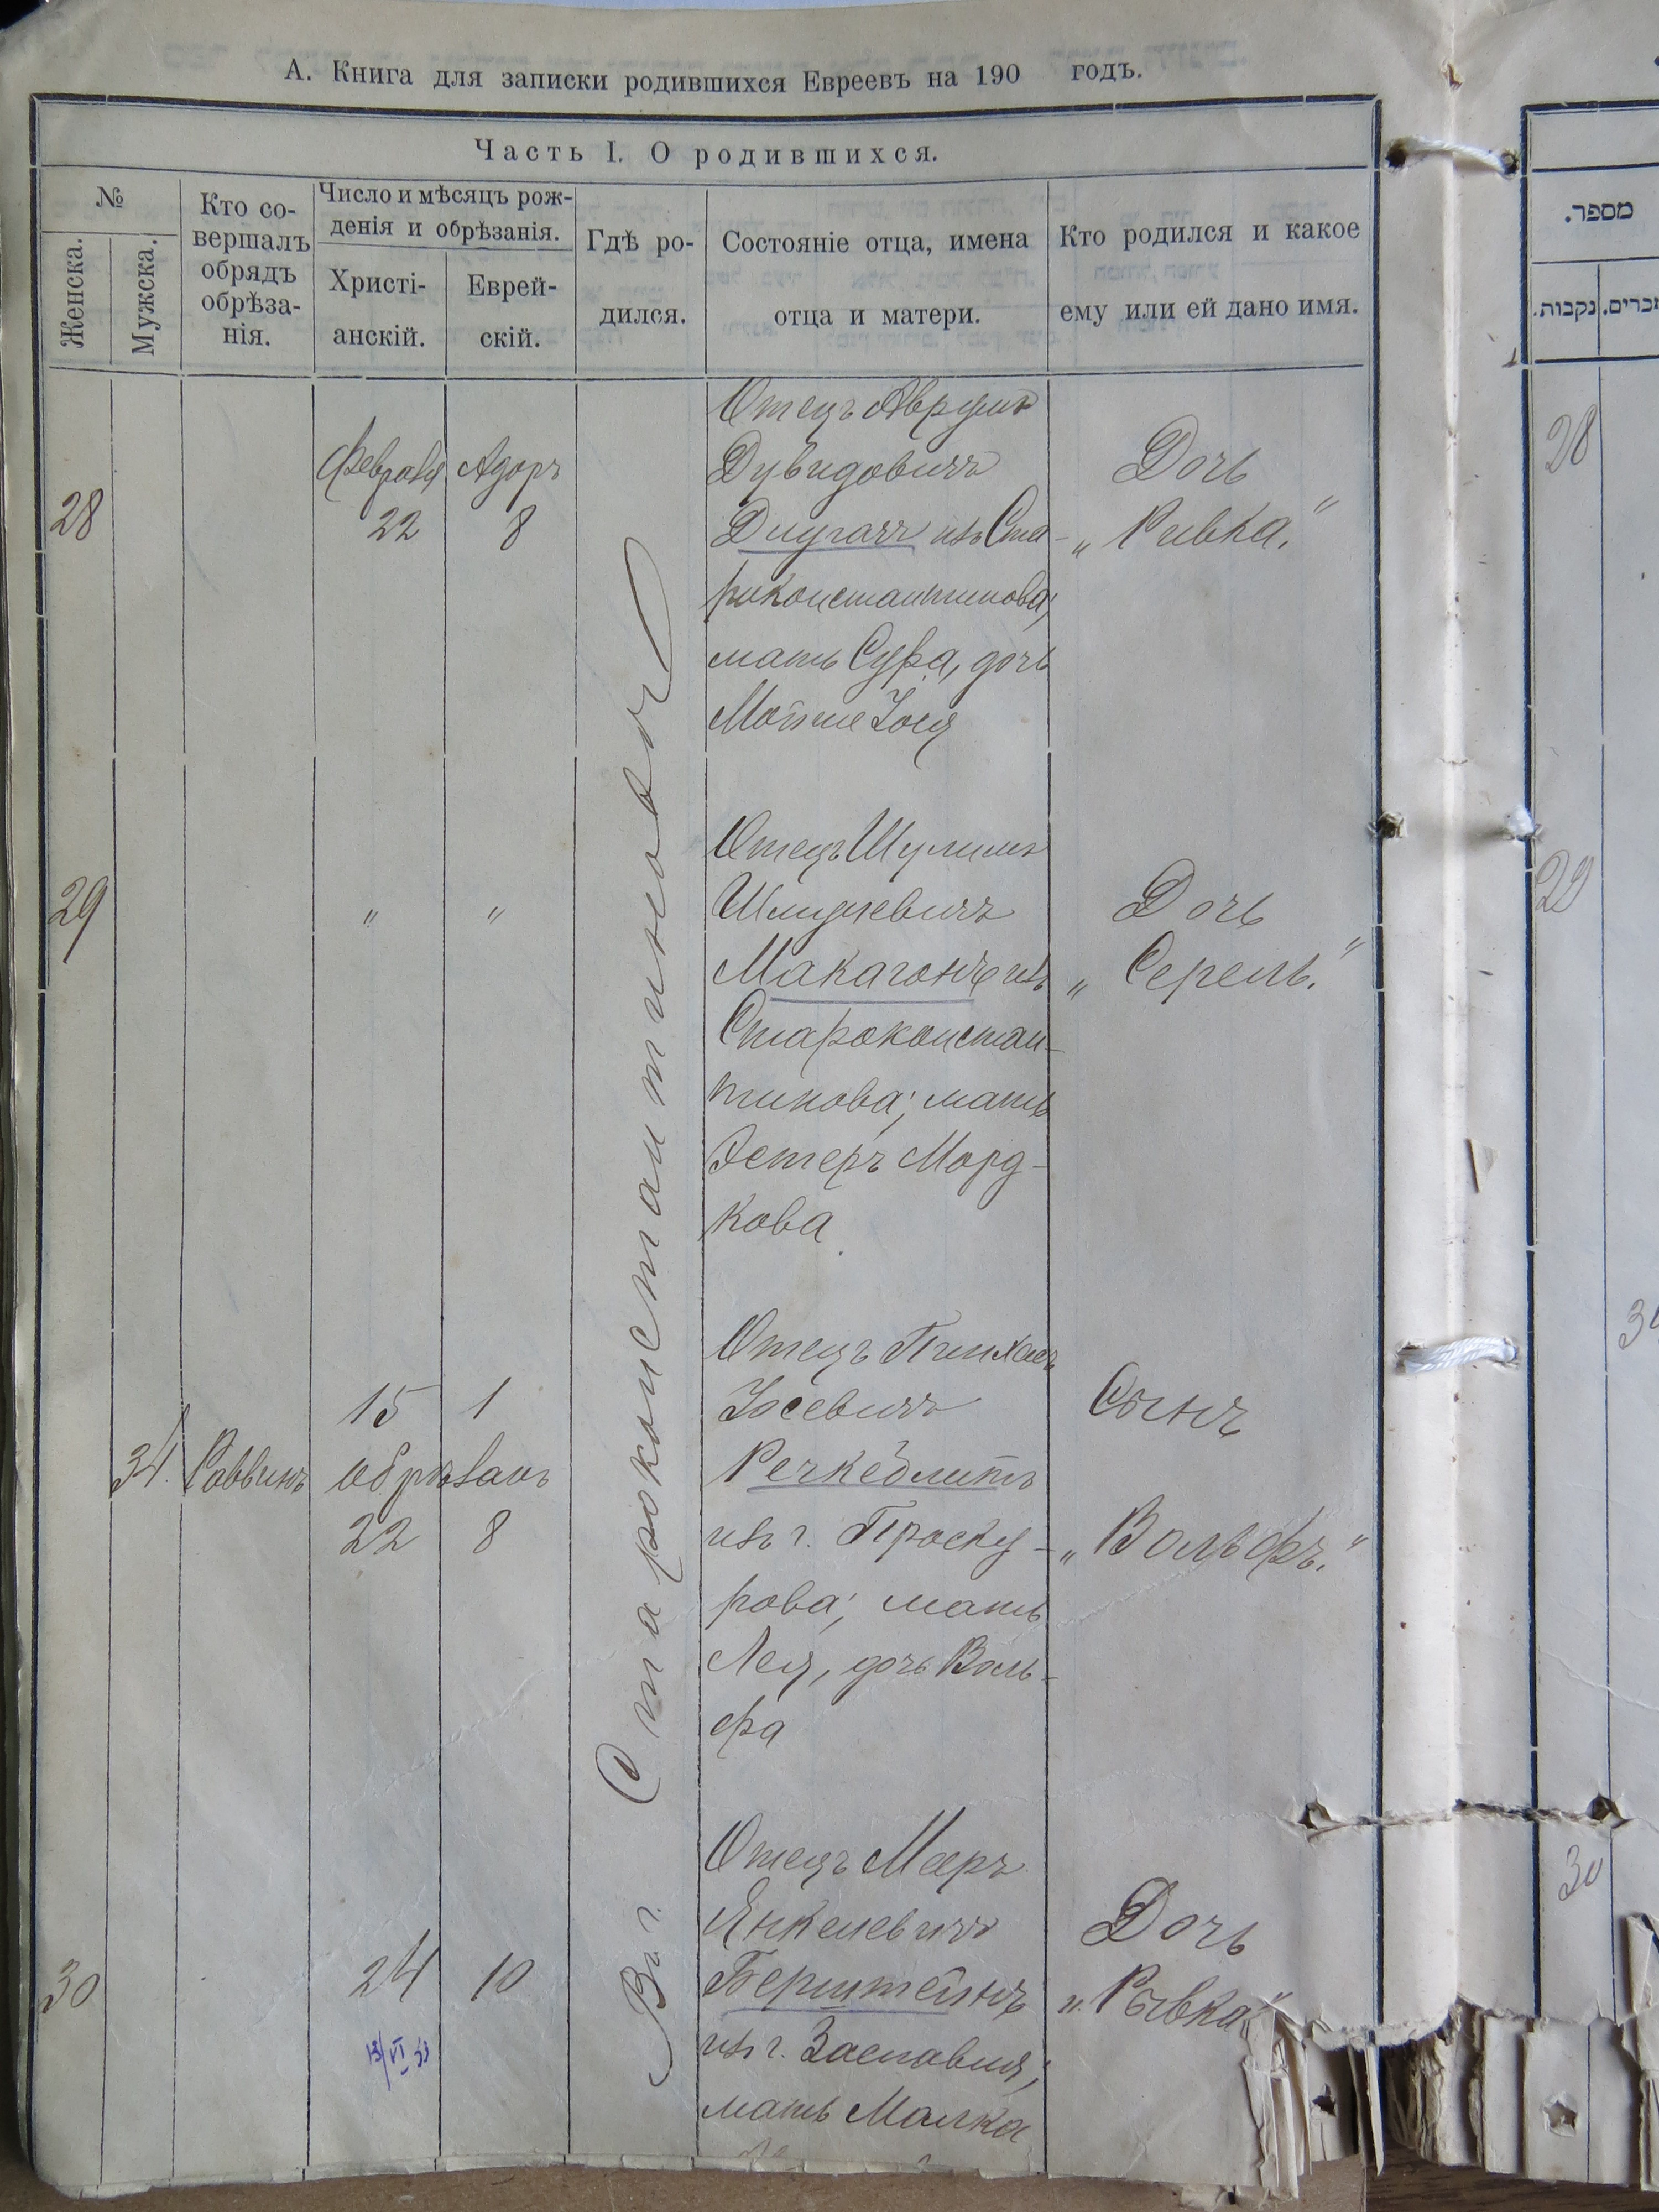 А. Книга для записки родившихся Евреевъ на 190 годъ.
Часть I. О родившихся.
№
Женска.
Мужска.
Кто со-
вершалъ
обрядъ
обрѣза-
нія.
Число и мѣсяцъ рож-
денія и обрѣзанія.
Христі-
анскій.
Еврей-
скій.
Гдѣ ро-
дился.
Состояніе отца, имена
отца и матери.
Кто родился и какое
ему или ей дано имя.
מספר.
נקבות.
זכרים.
Въ г. Староконстантиновѣ
28
Февраля
22
Адоръ
8
Отецъ Аврумъ
Дувидовичъ
Дигначъ изъ Ста-
роконстантинова;
мать Сура, дочь
Мотше Іося
Дочь
„Ривка."
28
29
„
„
Отецъ Шулимъ
Шмулевичъ
Макагонъ изъ
Староконстан-
тинова; мать
Эстеръ Морд-
кова
Дочь
„Серель."
29
34.
Раввинъ
15 1
обрѣзанъ
22 8
Отецъ Пинхасъ
Іосевичъ
изъ г. Проску-
рова; мать
Лея, дочь Воль-
фа
Сынъ
„Вольфъ."
30
24
10
13/VI 33
Отецъ Мееръ
Янкелевичъ
Бернштейнъ
изъ г. Заславля;
мать Малка
Дочь
„Рывка"
30